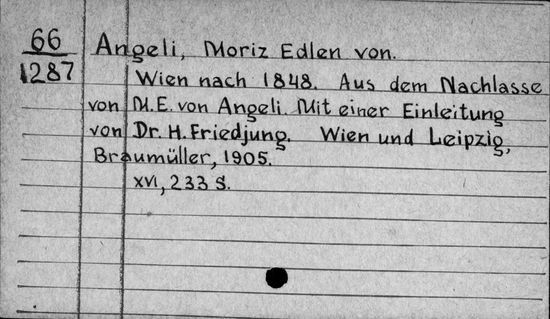 66
1287
Angeli, Moriz Edlen von.
Wien nach 1848. Aus dem Nachlasse
von M.E. von Angeli. Mit einer Einleitung
von Dr. H. Friedjung. Wien und Leipzig,
Braumüller, 1905.
XVI, 233 S.